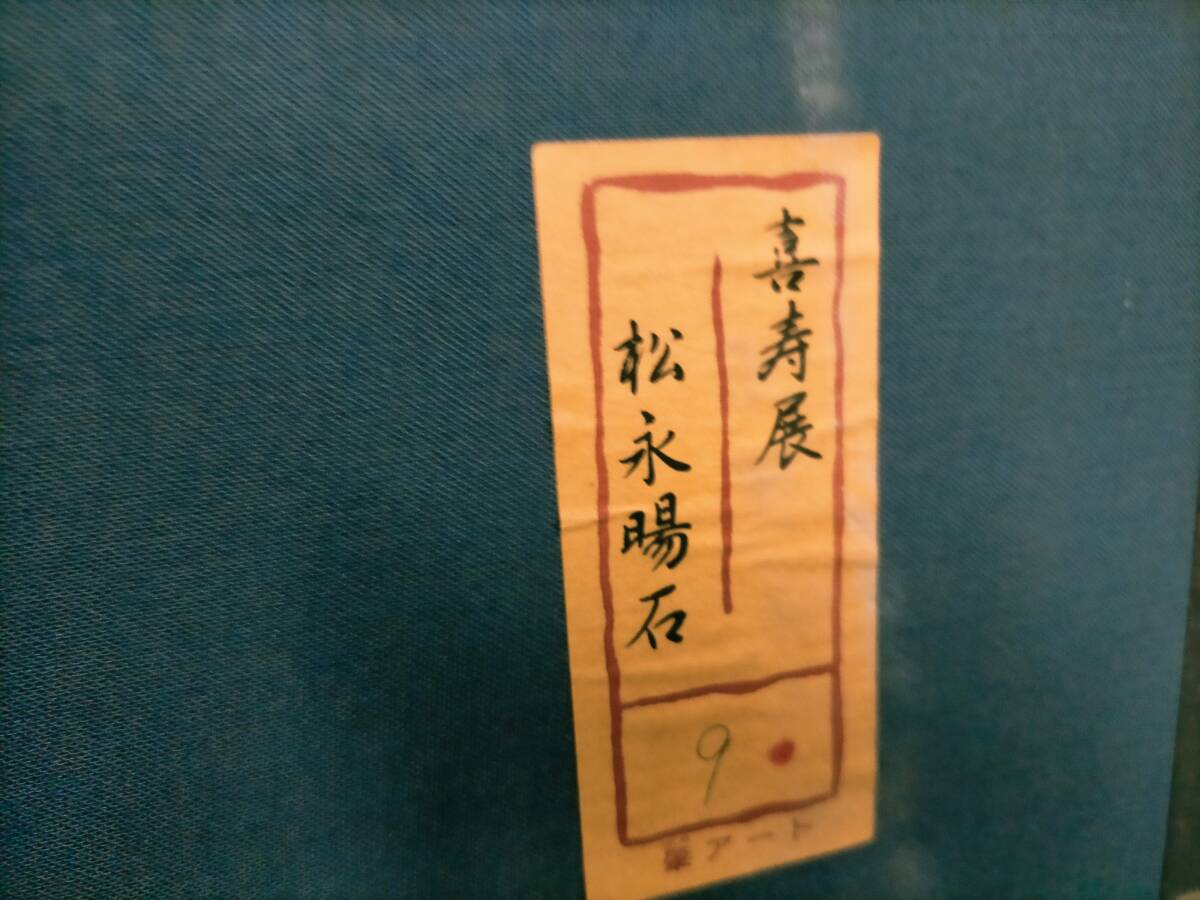 喜寿展
松永暘石
9
アート